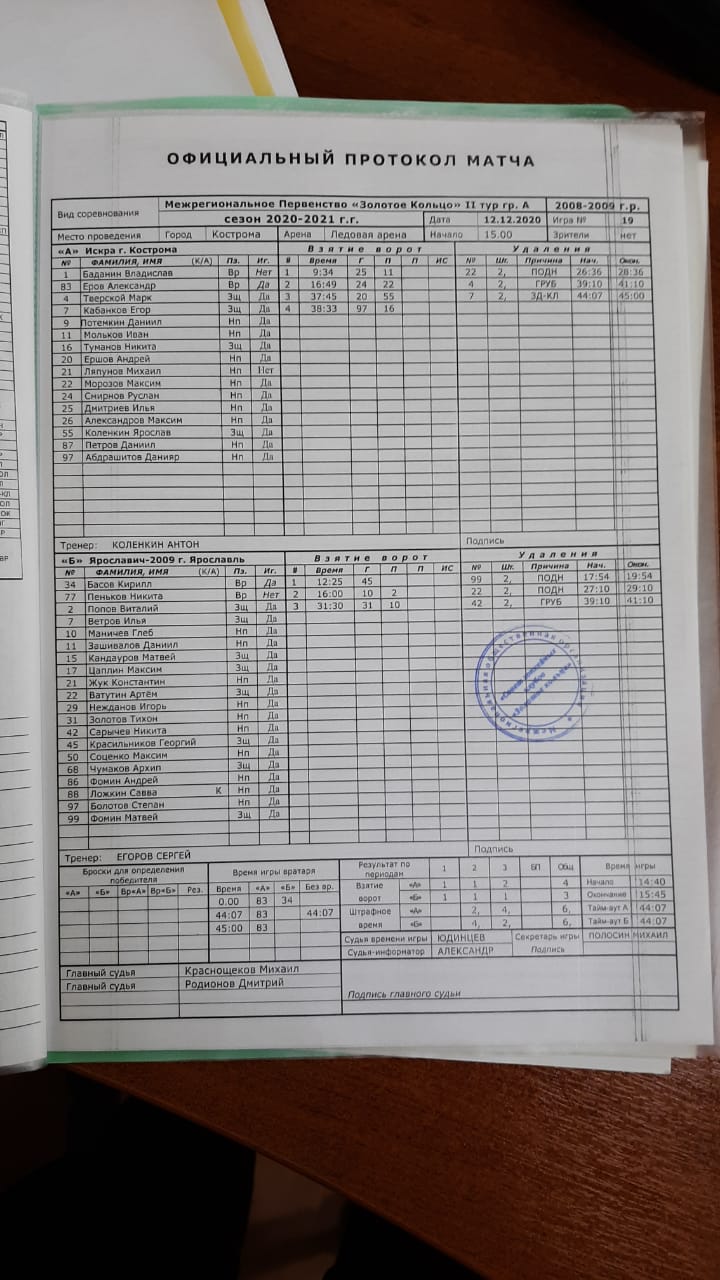 ОФИЦИАЛЬНЫЙ ПРОТОКОЛ МАТЧА
Вид соревнования Межрегиональное Первенство «Золотое Кольцо» II тур гр. А 2008-2009 г.р.
сезон 2020-2021 г.г. Дата 12.12.2020 Игра № 19
Место проведения Город Кострома Арена Ледовая арена Начало 15.00 Зрители нет
«А» Искра г. Кострома Взятие ворот Удаления
№ ФАМИЛИЯ, ИМЯ (К/А) Пз. Иг. # Время Г П П ИС № Шт. Причина Нач. Окон.
1 Баданин Владислав Вр Нет 1 9:34 25 11 22 2, ПОДН 26:36 28:36
83 Еров Александр Вр Да 2 16:49 24 22 4 2, ГРУБ 39:10 41:10
4 Тверской Марк Зщ Да 3 37:45 20 55 7 2, ЗД-КЛ 44:07 45:00
7 Кабанков Егор Зщ Да 4 38:33 97 16
9 Потемкин Даниил Нп Да
11 Мольков Иван Нп Да
16 Туманов Никита Зщ Да
20 Ершов Андрей Нп Да
21 Ляпунов Михаил Нп Нет
22 Морозов Максим Нп Да
24 Смирнов Руслан Нп Да
25 Дмитриев Илья Нп Да
26 Александров Максим Нп Да
55 Коленкин Ярослав Зщ Да
87 Петров Даниил Нп Да
97 Абдрашитов Данияр Нп Да
Тренер: КОЛЕНКИН АНТОН Подпись
«Б» Ярославич-2009 г. Ярославль Взятие ворот Удаления
№ ФАМИЛИЯ, ИМЯ (К/А) Пз. Иг. # Время Г П П ИС № Шт. Причина Нач. Окон.
34 Басов Кирилл Вр Да 1 12:25 45 99 2, ПОДН 17:54 19:54
77 Пеньков Никита Вр Нет 2 16:00 10 2 22 2, ПОДН 27:10 29:10
2 Попов Виталий Зщ Да 3 31:30 31 10 42 2, ГРУБ 39:10 41:10
7 Ветров Илья Зщ Да
10 Маничев Глеб Нп Да
11 Зашивалов Даниил Нп Да
15 Кандауров Матвей Зщ Да
17 Цаплин Максим Зщ Да
21 Жук Константин Нп Да
22 Ватутин Артём Зщ Да
29 Нежданов Игорь Нп Да
31 Золотов Тихон Нп Да
42 Сарычев Никита Нп Да
45 Красильников Георгий Зщ Да
50 Соценко Максим Нп Да
68 Чумаков Архип Зщ Да
86 Фомин Андрей Нп Да
88 Ложкин Савва К Нп Да
97 Болотов Степан Нп Да
99 Фомин Матвей Зщ Да
Тренер: ЕГОРОВ СЕРГЕЙ Подпись
Броски для определения победителя Время игры вратаря Результат по периодам 1 2 3 БП Общ Время игры
«А» «Б» Вр«А» Вр«Б» Рез. Время «А» «Б» Без вр. Взятие ворот «А» 1 1 2 4 Начало 14:40
0.00 83 34 «Б» 1 1 1 3 Окончание 15:45
44:07 83 44:07 Штрафное время «А» 2, 4, 6, Тайм-аут А 44:07
45:00 83 «Б» 4, 2, 6, Тайм-аут Б 44:07
Судья времени игры ЮДИНЦЕВ Секретарь игры ПОЛОСИН МИХАИЛ
Судья-информатор АЛЕКСАНДР Подпись
Главный судья Краснощеков Михаил
Главный судья Родионов Дмитрий
Подпись главного судьи